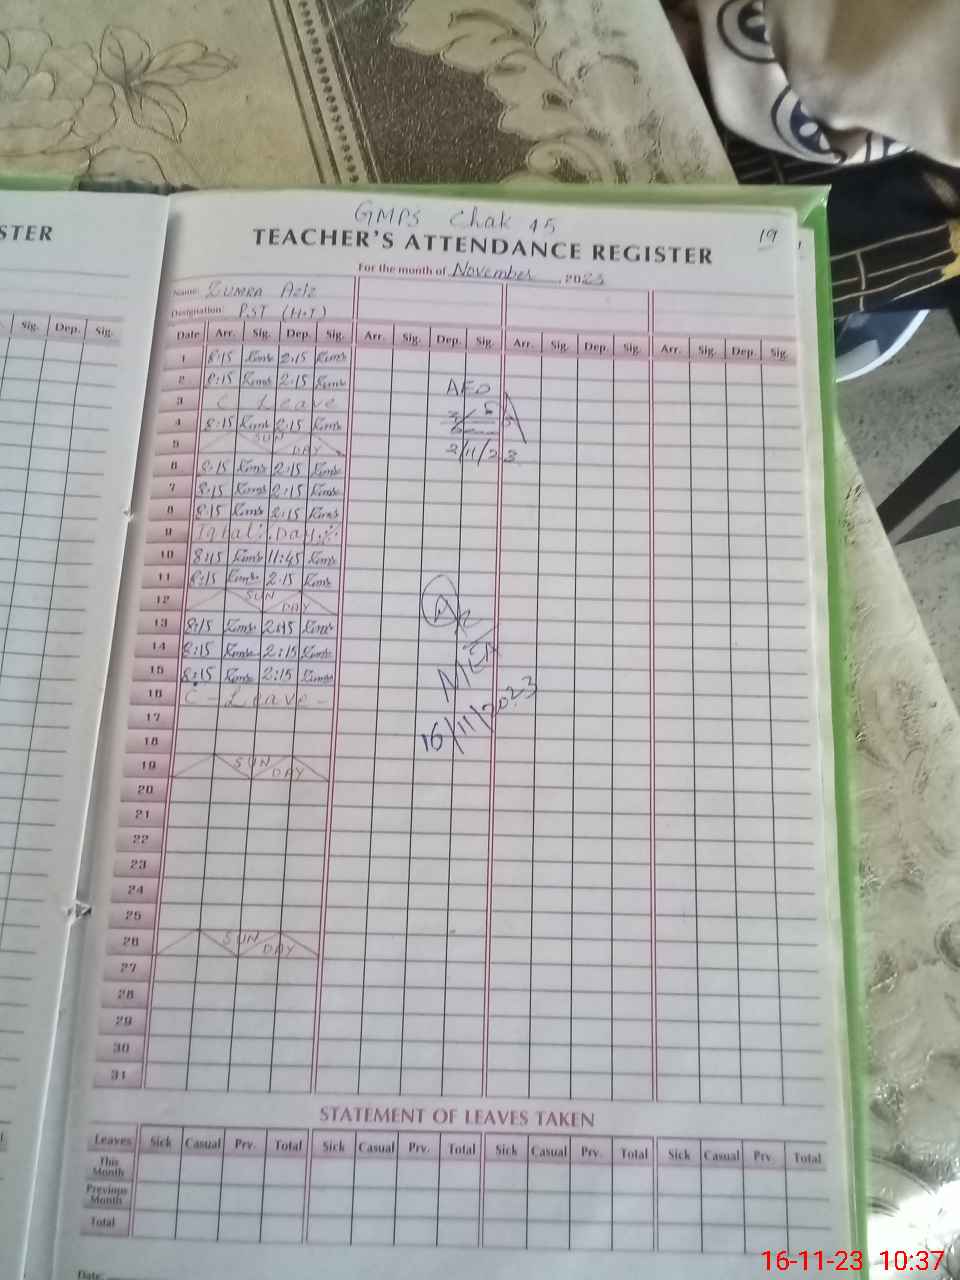 STER
Sig. Dep. Sig.
GMPS Chak 45
19
TEACHER'S ATTENDANCE REGISTER
For the month of November, 2023
Name: ZUMRA AZIZ
Designation: PST (H.T)
Date Arr. Sig. Dep. Sig. Arr. Sig. Dep. Sig. Arr. Sig. Dep. Sig. Arr. Sig. Dep. Sig.
1 8:15 2:15
2 8:15 2:15 AEO
3 C Leave
4 8:15 2:15
5 SUN DAY 2/11/23
6 8:15 2:15
7 8:15 2:15
8 8:15 2:15
9 Iqbal Day
10 8:15 11:45
11 8:15 2:15
12 SUN DAY
13 8:15 2:15
14 8:15 2:15
15 8:15 2:15 MEA
16 C - Leave -
17 16/11/2023
18
19 SUN DAY
20
21
22
23
24
25
26 SUN DAY
27
28
29
30
31
STATEMENT OF LEAVES TAKEN
Leaves Sick Casual Prv. Total Sick Casual Prv. Total Sick Casual Prv. Total Sick Casual Prv. Total
This Month
Previous Month
Total
Date:
16-11-23 10:37